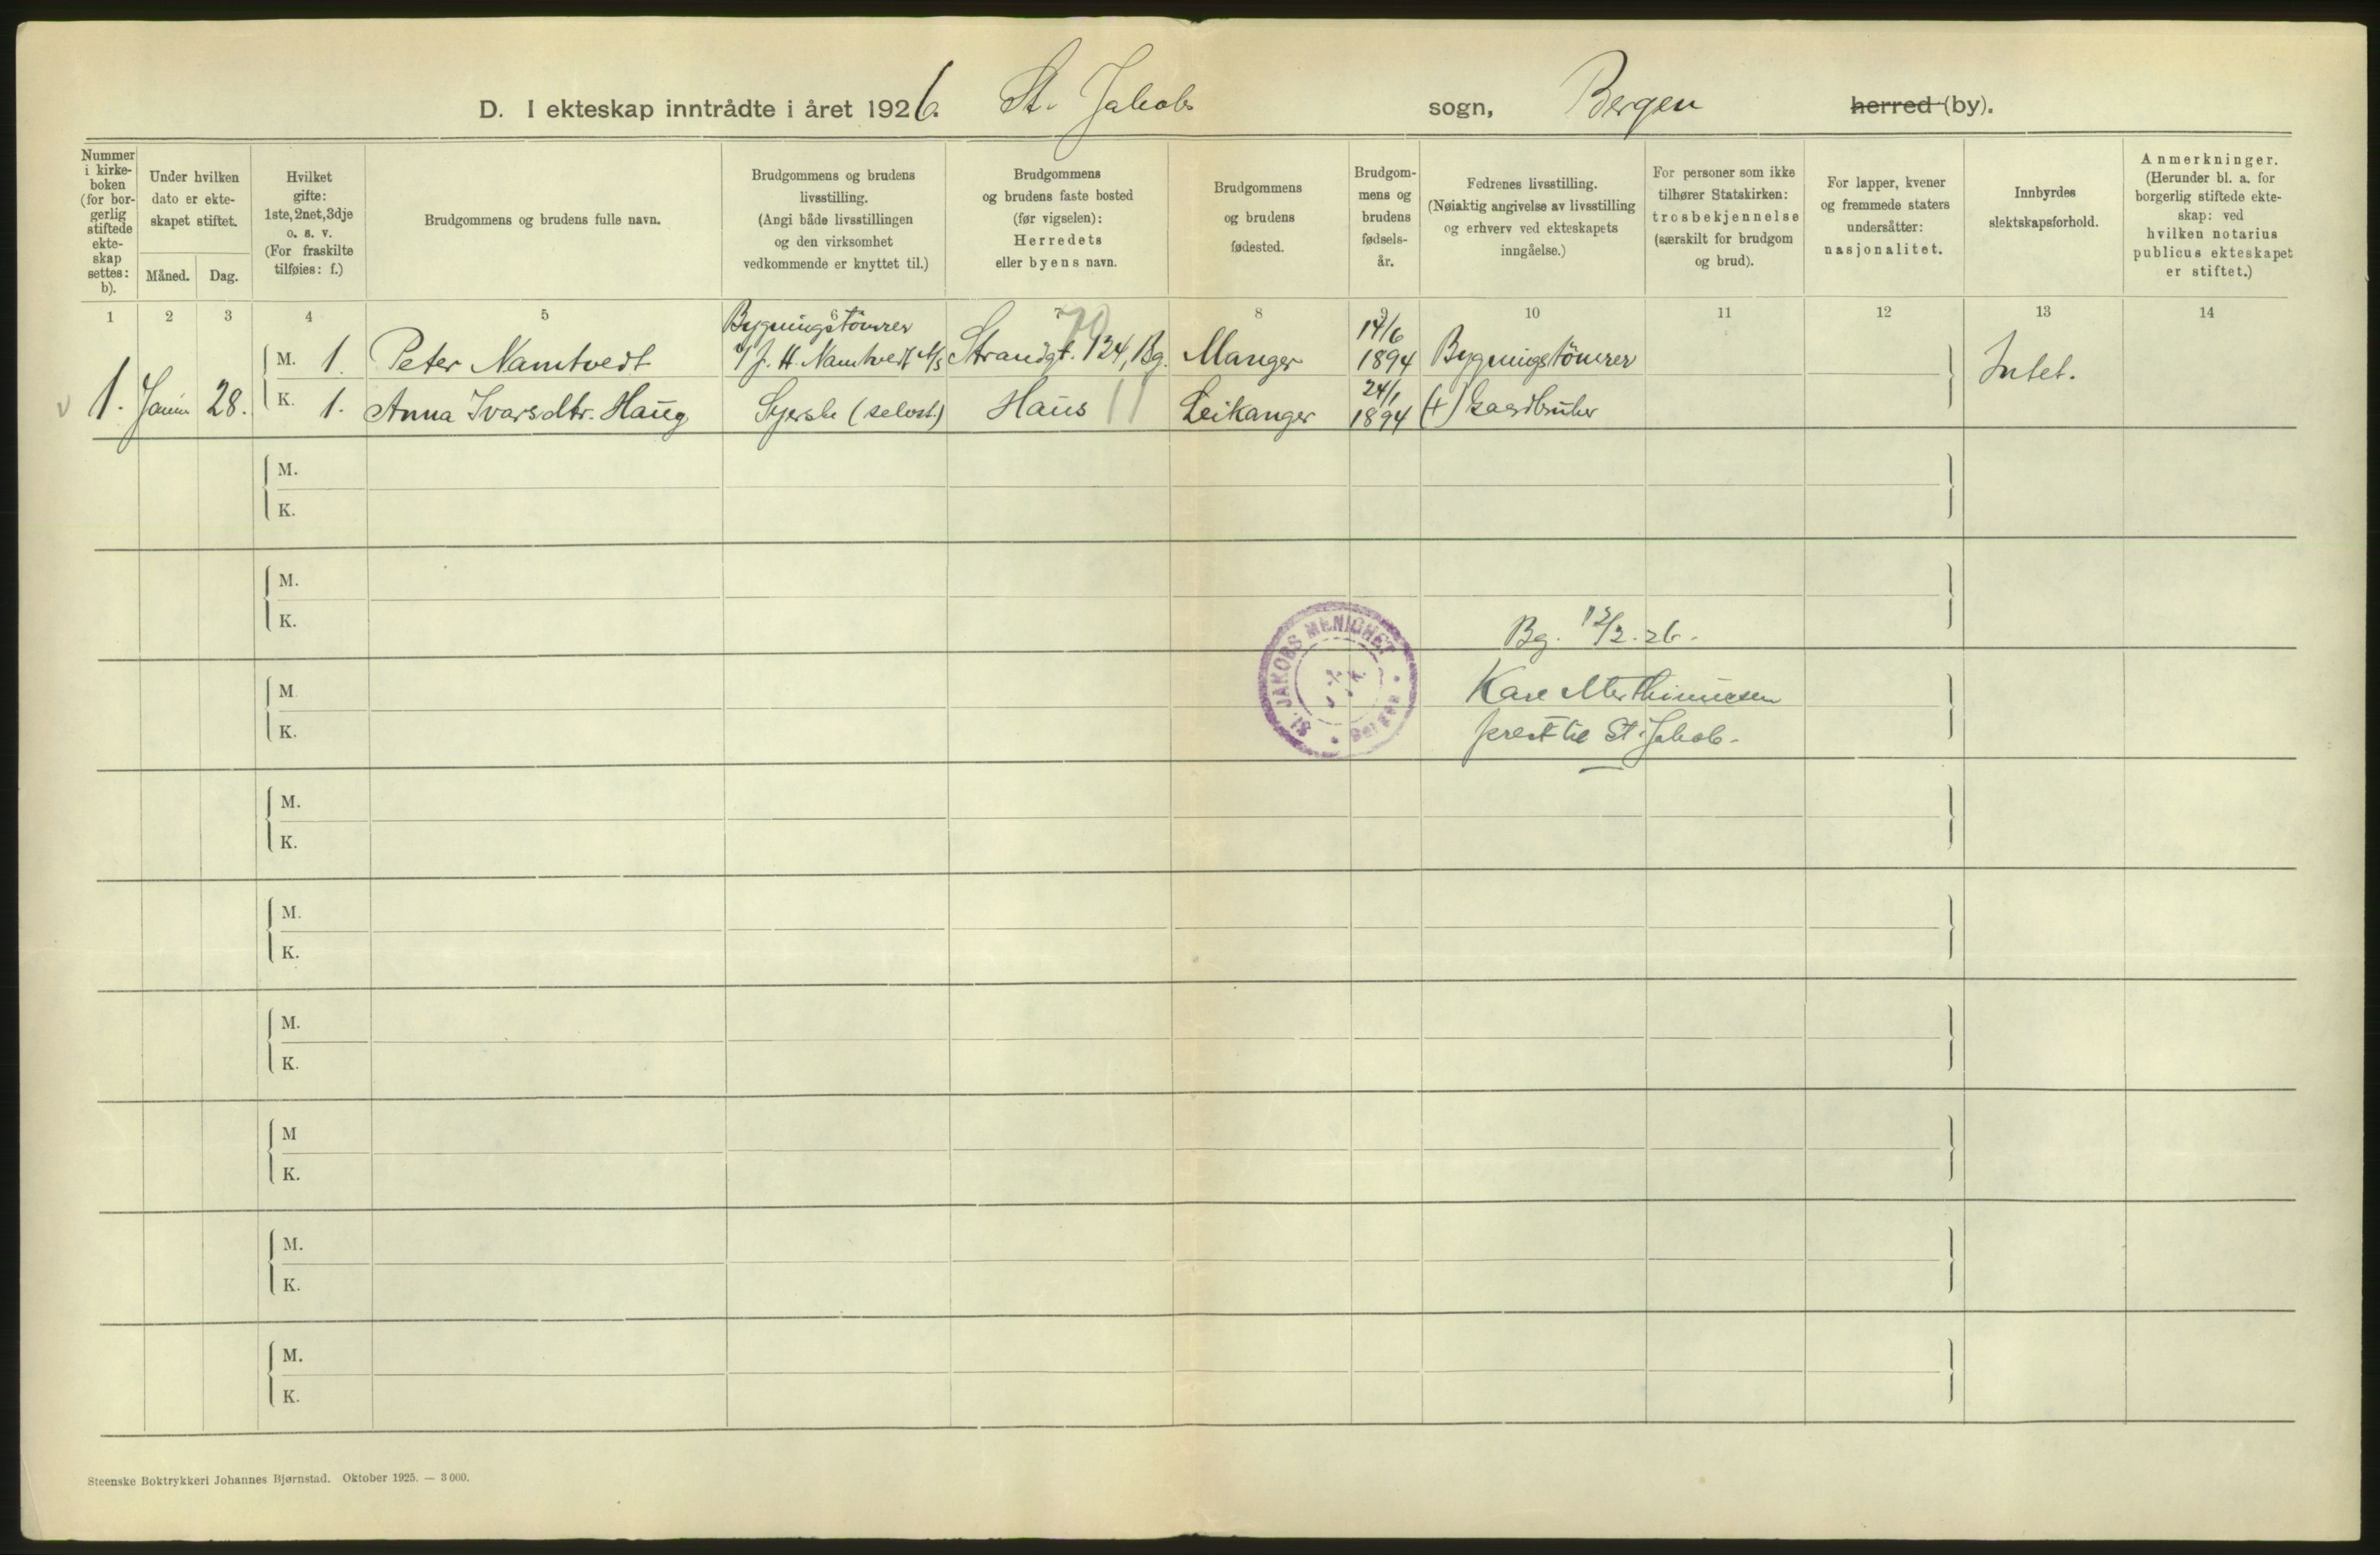 D. I ekteskap inntrådte i året 1926. St. Jakobs sogn, Bergen herred (by).
Nummer
i kirke-
boken
(for bor-
gerlig
stiftede
ekte-
skap
settes:
b).
Under hvilken
dato er ekte-
skapet stiftet.
Måned.
Dag.
Hvilket
gifte:
1ste, 2net, 3dje
o. s. v.
(For fraskilte
tilføies: f.)
Brudgommens og brudens fulle navn.
Brudgommens og brudens
livsstilling.
(Angi både livsstillingen
og den virksomhet
vedkommende er knyttet til.)
Brudgommens
og brudens faste bosted
(før vigselen):
Herredets
eller byens navn.
Brudgommens
og brudens
fødested.
Brudgom-
mens og
brudens
fødsels-
år.
Fedrenes livsstilling.
(Nøiaktig angivelse av livsstilling
og erhverv ved ekteskapets
inngåelse.)
For personer som ikke
tilhører Statakirken:
trosbekjennelse
(særskilt for brudgom
og brud).
For lapper, kvener
og fremmede staters
undersåtter:
nasjonalitet.
Innbyrdes
slektskapsforhold.
Anmerkninger.
(Herunder bl. a. for
borgerlig stiftede ekte-
skap: ved
hvilken notarius
publicus ekteskapet
er stiftet.)
1 2 3 4 5 6 7 8 9 10 11 12 13 14
Bygningstömrer 70 14/6
M. 1. Peter Namtvedt J. H. Namtvedt A/S Strandgt. 124, Bg. Manger 1894 Bygningstömrer Intet.
24/1
1. 28. K. 1. Anna Ivarsdtr. Haug Syerske (selvst.) Haus 11 Leikanger 1894 (+) Gaardbruker
M.
K.
M.
K.
Bg. 12/2. 26.
ST. JAKOBS MENIGHET
Bergen
M
Kare
K.
prest til St. Jakob.
M.
K.
M.
K.
M.
K.
M
K.
M.
K.
M.
K.
Steenske Boktrykkeri Johannes Bjørnstad. Oktober 1925. — 3 000.